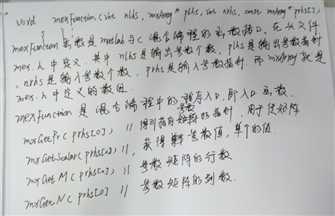 void mexFunction(int nlhs, mxArray* plhs, int nrhs, const mxArray* prhs[])
mexFunction 函数是matlab与C混合编程的函数接口, 在从文件
mex.h 中定义. 其中 nlhs是输出参数个数, plhs是输出参数指针
, nrhs是输入参数个数, prhs是输入参数指针 而 mxArray 就是
mex.h 中定义的数据
mexFunction 是混合编程中的程序入口, 即入口函数
mxGetPr(prhs[0]) // 得到指向矩阵的指针, 用于实矩阵
mxGetScalar(prhs[0]) // 获得参数值, 单个的值
mxGetM(prhs[0]) // 参数矩阵的行数
mxGetN(prhs[0]) // 参数矩阵的列数.